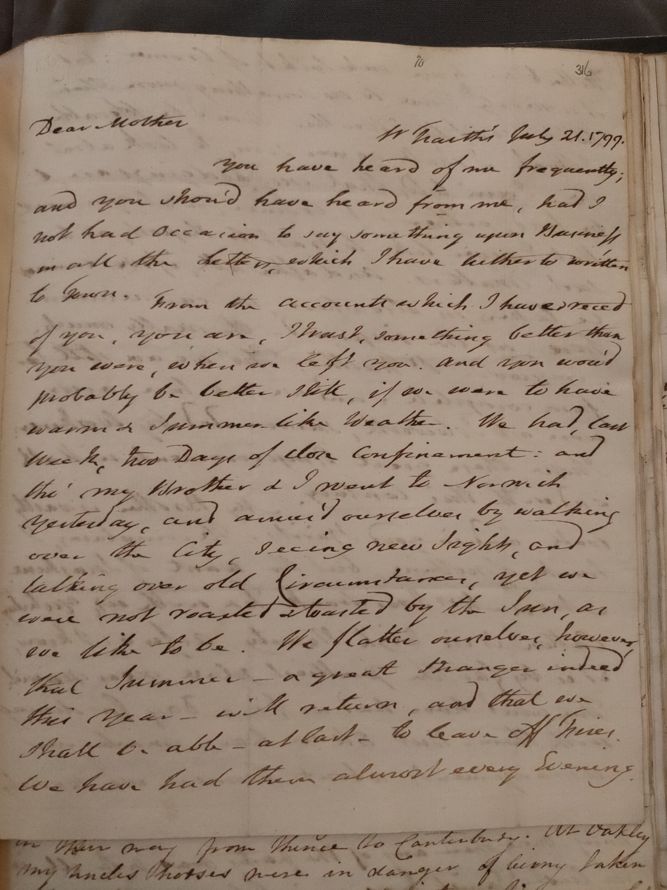 70
316
Dear Mother
W Thaith's July 21. 1799.
You have heard of me frequently;
and you shou'd have heard from me, had I
not had Occasion to say something upon Business
in all the Letters, which I have hitherto written
to Town. From the accounts which I have reced
of you, you are, I trust, something better than
you were, when we left you. And you wou'd
probably be better still, if we were to have
warm & Summer-like Weather. We had, last
Week, two Days of close Confinement: and
tho' my Brother & I went to Norwich
yesterday, and amus'd ourselves by walking
over the City, seeing new Sights, and
talking over old Circumstances, yet we
were not roasted & toasted by the Sun, as
we like to be. We flatter ourselves, however,
that Summer - a great Stranger indeed
this year - will return, and that we
shall be able - at last - to leave off Fires.
We have had them almost every Evening.
in their way from thence to Canterbury. At Oakley
my Uncles Horses were in danger of being taken